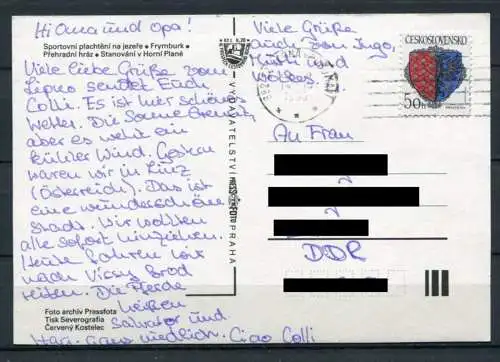 Hi Oma und Opa!
Sportovní plachtění na jezeře • Frymburk •
Přehradní hráz • Stanování v Horní Plané
Viele liebe Grüße vom
Lipno sendet Euch
Colli. Es ist hier schönes
Wetter. Die Sonne brennt,
aber es weht ein
kühler Wind. Gestern
waren wir in Linz
(Österreich). Das ist
eine wunderschöne
Stadt. Wir wollten
alle sofort hinziehen.
Heute fahren wir
nach Vissy Brod
reiten. Die Pferde
heißen
Salvator und
ganz niedlich. Ciao Colli
Foto archiv Pressfota
Tisk Severografia
Červený Kostelec
VYDAVATELSTVÍ PRESSFOTO PRAHA
Viele Grüße
auch von Ingo,
und
ČESKOSLOVENSKO
50h
An Frau
DDR